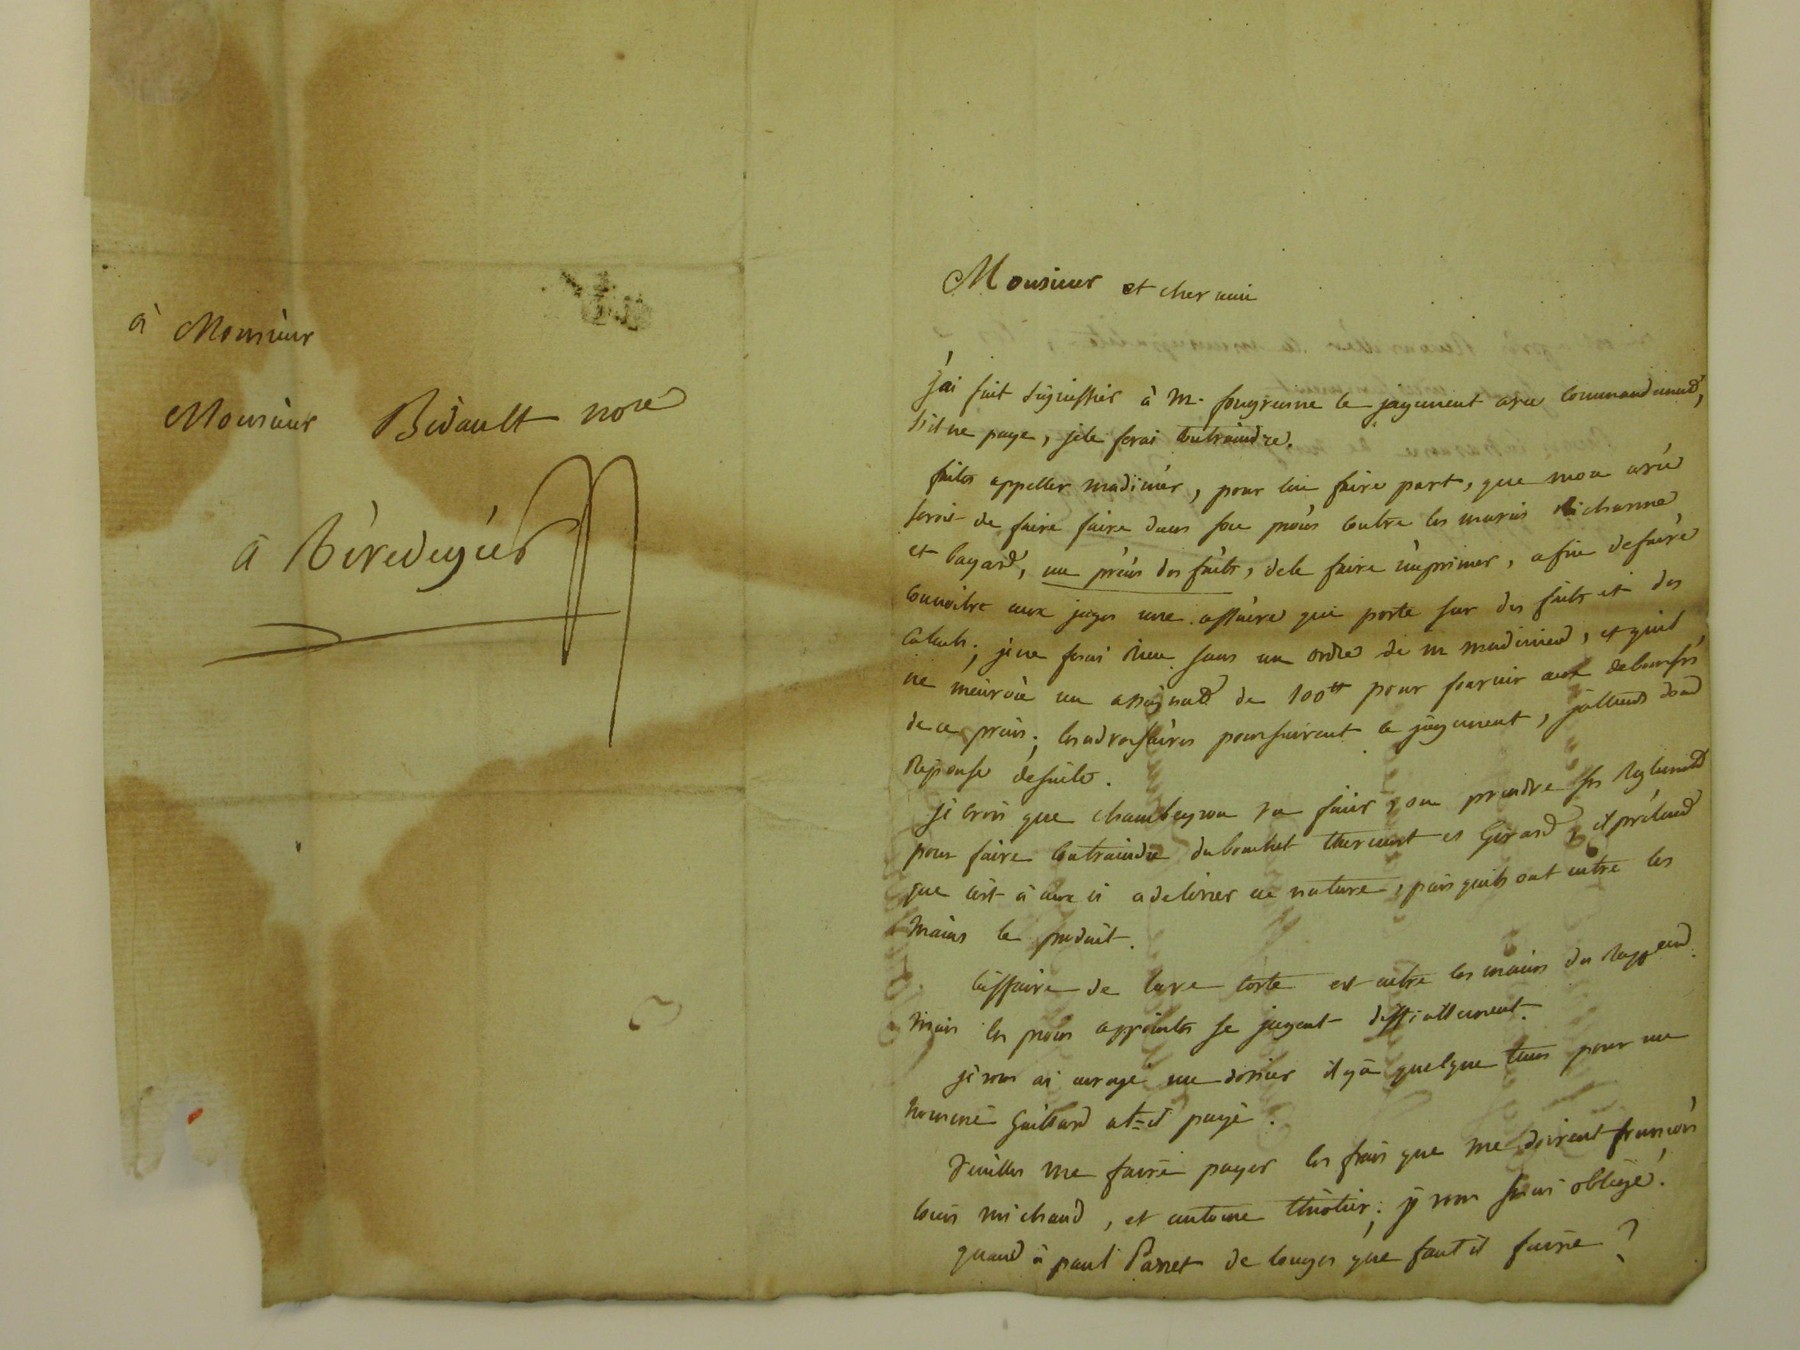 à Monsieur
Monsieur Bidault nore
à Bérévegiès
Monsieur et cher ami
j'ai fait signiffier à m. fougerasse le jugement avec commandement,
s'il ne paye, je le ferai contraindre.
faites appeller madinier, pour lui faire part, que mon avis
seroit de faire faire dans son procès contre les maris richarme
et bayard, un précis des faits, de le faire imprimer, afin de faire
connoître aux juges une affaire qui porte sur des faits et des
calculs; je ne ferai rien sans un ordre de m madinier, et qu'il
ne m'envoie un assignat de 100tt pour fournir aux deboursés
de ce précis; les adversaires poursuivent le jugement, j'attends donc
reponse de suite.
je crois que chambeyron va faire prendre ses reglements
pour faire contraindre dubouchet thevenet et Girard, il prétend
que c'est à eux à delivrer en nature, puis qu'ils ont entre les
mains le produit.
l'affaire de lave torte est entre les mains du rapp eur
mais les procès appointés se jugent difficillement.
je vous ai envoyé un dossier il y a quelque tems pour un
nommé Gaillard at-il payé.
veuillez me faire payer les frais que me doivent francois
louis michaud, et antoine thiolier; je vous serai obligé.
quand à paul Parret de longes que faut il faire?